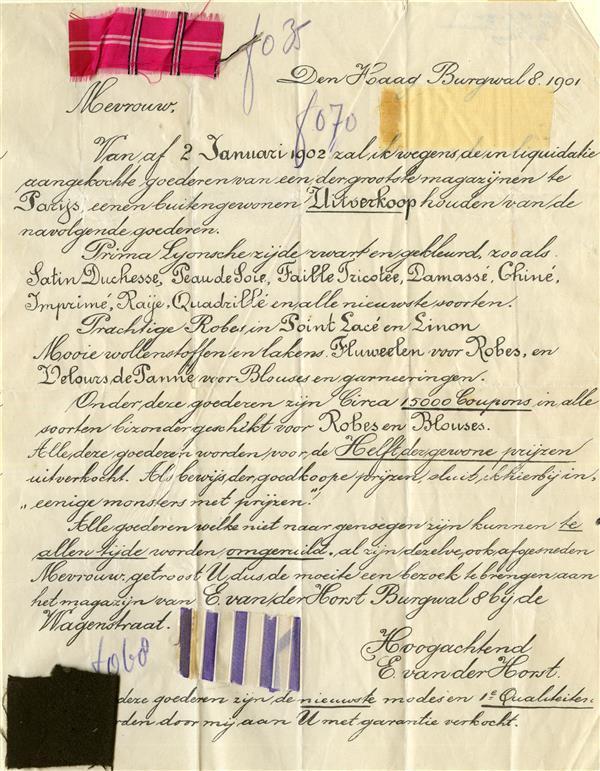 f 0 35
Den Haag Burgwal 8. 1901
Mevrouw,
f 0 70
Van af 2 Januari 1902 zal ik wegens de in liquidatie
aangekochte goederen van een der grootste magazijnen te
Parijs, eenen buitengewonen Uitverkoop houden van de
navolgende goederen.
Prima Lyonsche zijde zwart en gekleurd, zooals
Satin Duchesse, Peau de Soie, Faille Tricotée, Damassé, Chiné,
Imprimé, Raije, Quadrillé en alle nieuwste soorten.
Prachtige Robes, in Point Lacé en Linon
Mooie wollenstoffen en lakens. Fluweelen voor Robes, en
Velours de Panne voor Blouses en garneeringen.
Onder deze goederen zijn Circa 15000 Coupons, in alle
soorten bizonder geschikt voor Robes en Blouses.
Alle deze goederen worden voor de Helft der gewone prijzen
uitverkocht. Als bewijs der goedkoope prijzen, sluit ik hierbij in,
„eenige monsters met prijzen".
Alle goederen welke niet naar genoegen zijn kunnen te
allen tijde worden omgeruild, al zijn dezelve, ook afgesneden
Mevrouw, getroost U dus de moeite een bezoek te brengen aan
het magazijn van E. van der Horst Burgwal 8 bij de
Wagenstraat.
Hoogachtend
E. van der Horst.
f 0 60
deze goederen zijn de nieuwste modes en 1e Qualiteiten.
rden door mij aan U met garantie verkocht.